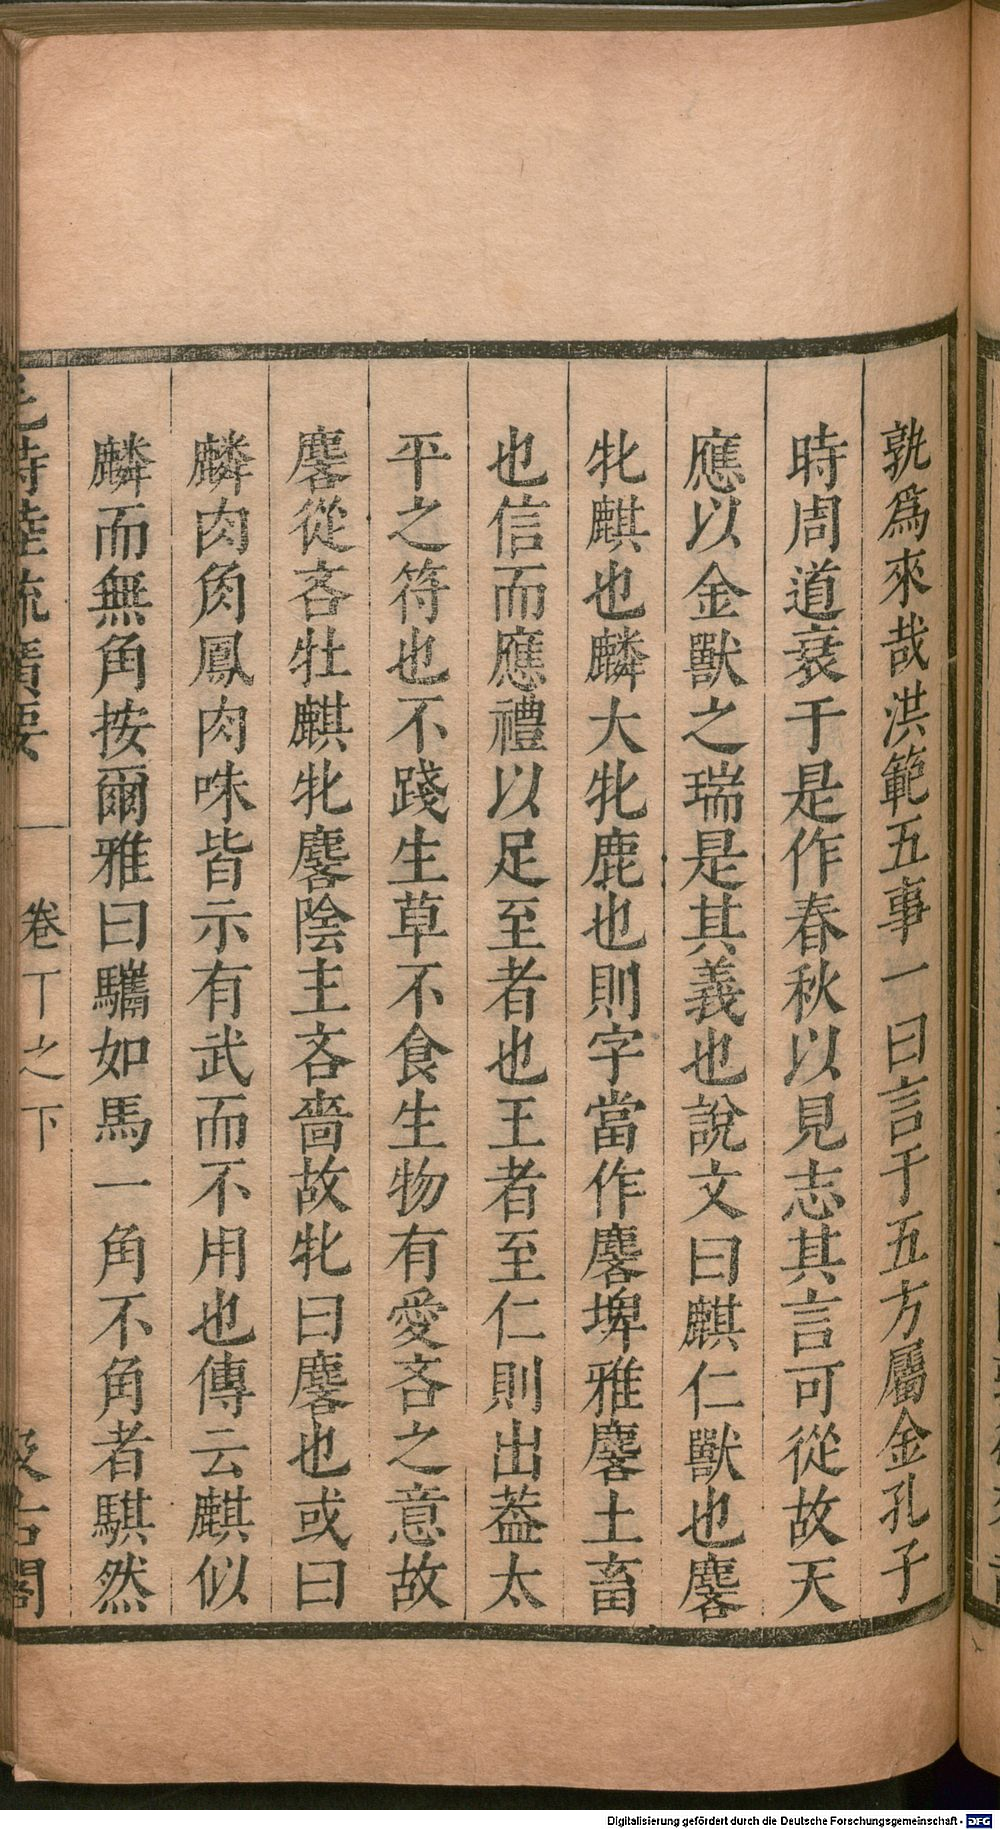 孰爲來哉洪範五事一曰言于五方屬金孔子
時周道衰于是作春秋以見志其言可從故天
應以金獸之瑞是其義也說文曰麒仁獸也麐
牝麒也麟大牝鹿也則字當作麐埤雅麐土畜
也信而應禮以足至者也王者至仁則出葢太
平之符也不踐生草不食生物有愛吝之意故
麐從吝牡麒牝麐陰主吝嗇故牝曰麐也或曰
麟肉角鳳肉咮皆示有武而不用也傳云麒似
麟而無角按爾雅曰驨如馬一角不角者騏然
毛詩陸疏廣要
卷下之下
汲古閣
Digitalisierung gefördert durch die Deutsche Forschungsgemeinschaft - DFG